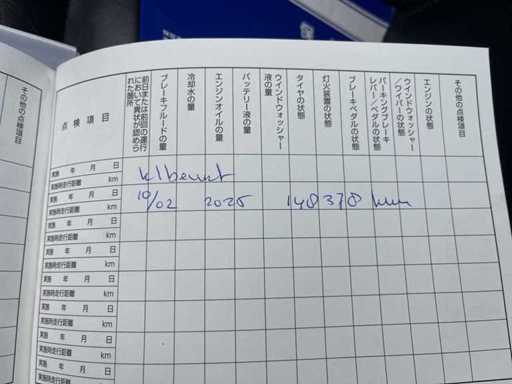 その他の点検項目
点検項目
前日または前回の運行
において異状が認めら
れた箇所
ブレーキフルードの量
冷却水の量
エンジンオイルの量
バッテリー液の量
ウインドウォッシャー
液の量
タイヤの状態
灯火装置の状態
ブレーキペダルの状態
パーキングブレーキ
レバー/ペダルの状態
ウインドウォッシャー
/ワイパーの状態
エンジンの状態
その他の点検項目
実施 年 月 日
実施時走行距離 km
実施 年 月 日
実施時走行距離 km
10/02 2025 148378 km
実施 年 月 日
実施時走行距離 km
実施 年 月 日
実施時走行距離 km
実施 年 月 日
実施時走行距離 km
実施 年 月 日
実施時走行距離 km
実施 年 月 日
実施時走行距離 km